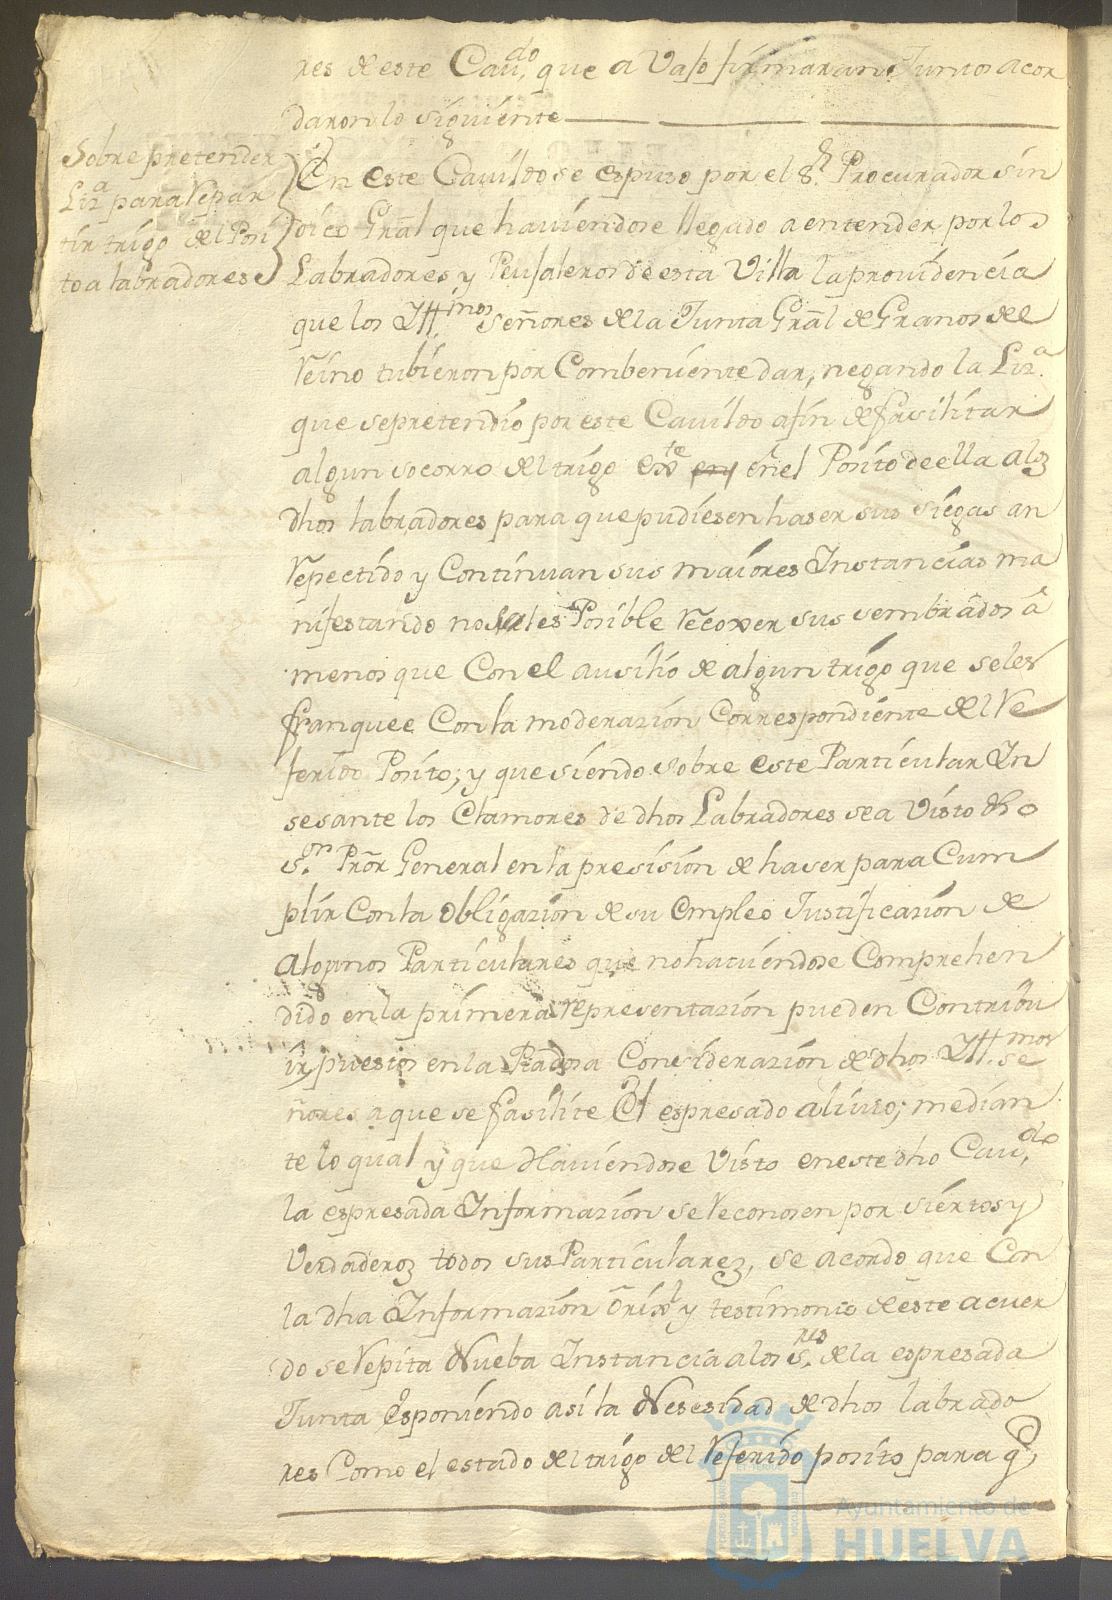 res de este Cau.do, que a Vaso firmaran Juntos acor
daron lo siguiente
Sobre pretender
Liz.a para Repar
tir trigo del Posi
to a labradores
En este Cauildo se espuso por el S.r Procurador Sin
dico Gral que haviendose llegado a entender por los
Labradores y Peujaleros de esta Villa la providencia
que los Ill.mos Señores de la Junta Gral de Granos del
Reino tubieron por Combeniente dar, negando la Liz.a
que se pretendio por este Cauildo afin de fasilitar
algun socorro del trigo exte en el Posito de ella a los
dhos labradores para que pudiesen haser sus siegas an
Repectido y Continuan sus maiores Instancias ma
nifestando no serles Posible Recoxer sus sembrados â
menos que Con el ausilio de algun trigo que se les
franquee Con la moderazion Correspondiente del Re
ferido Posito; y que siendo sobre este Particular In
sesante los Clamores de dhos Labradores se a Visto dho
S.or Pror General en la presision de haser para Cum
plir Con la obligazion de su empleo Justificazion de
algunos Particulares que no haviendose Comprehen
dido en la primera representazion pueden Contribu
ir, puestos en la Piadosa Considerazion de dhos Ill.mos Se
ñores a que se fasilite El espresado alivio; median
te lo qual y que Haviendose Visto en este dho Cau.do
la espresada Informazion se Reconosen por siertos y
Verdaderos todos sus Particulares, se acordo que Con
la dha Informazion orixl y testimonio de este acuer
do se Repita Nueba Instancia a los S.res de la espresada
Junta esponiendo asi la Nesesidad de dhos labrado
res Como el estado del trigo del Referido posito para q.e
Ayuntamiento de
HUELVA